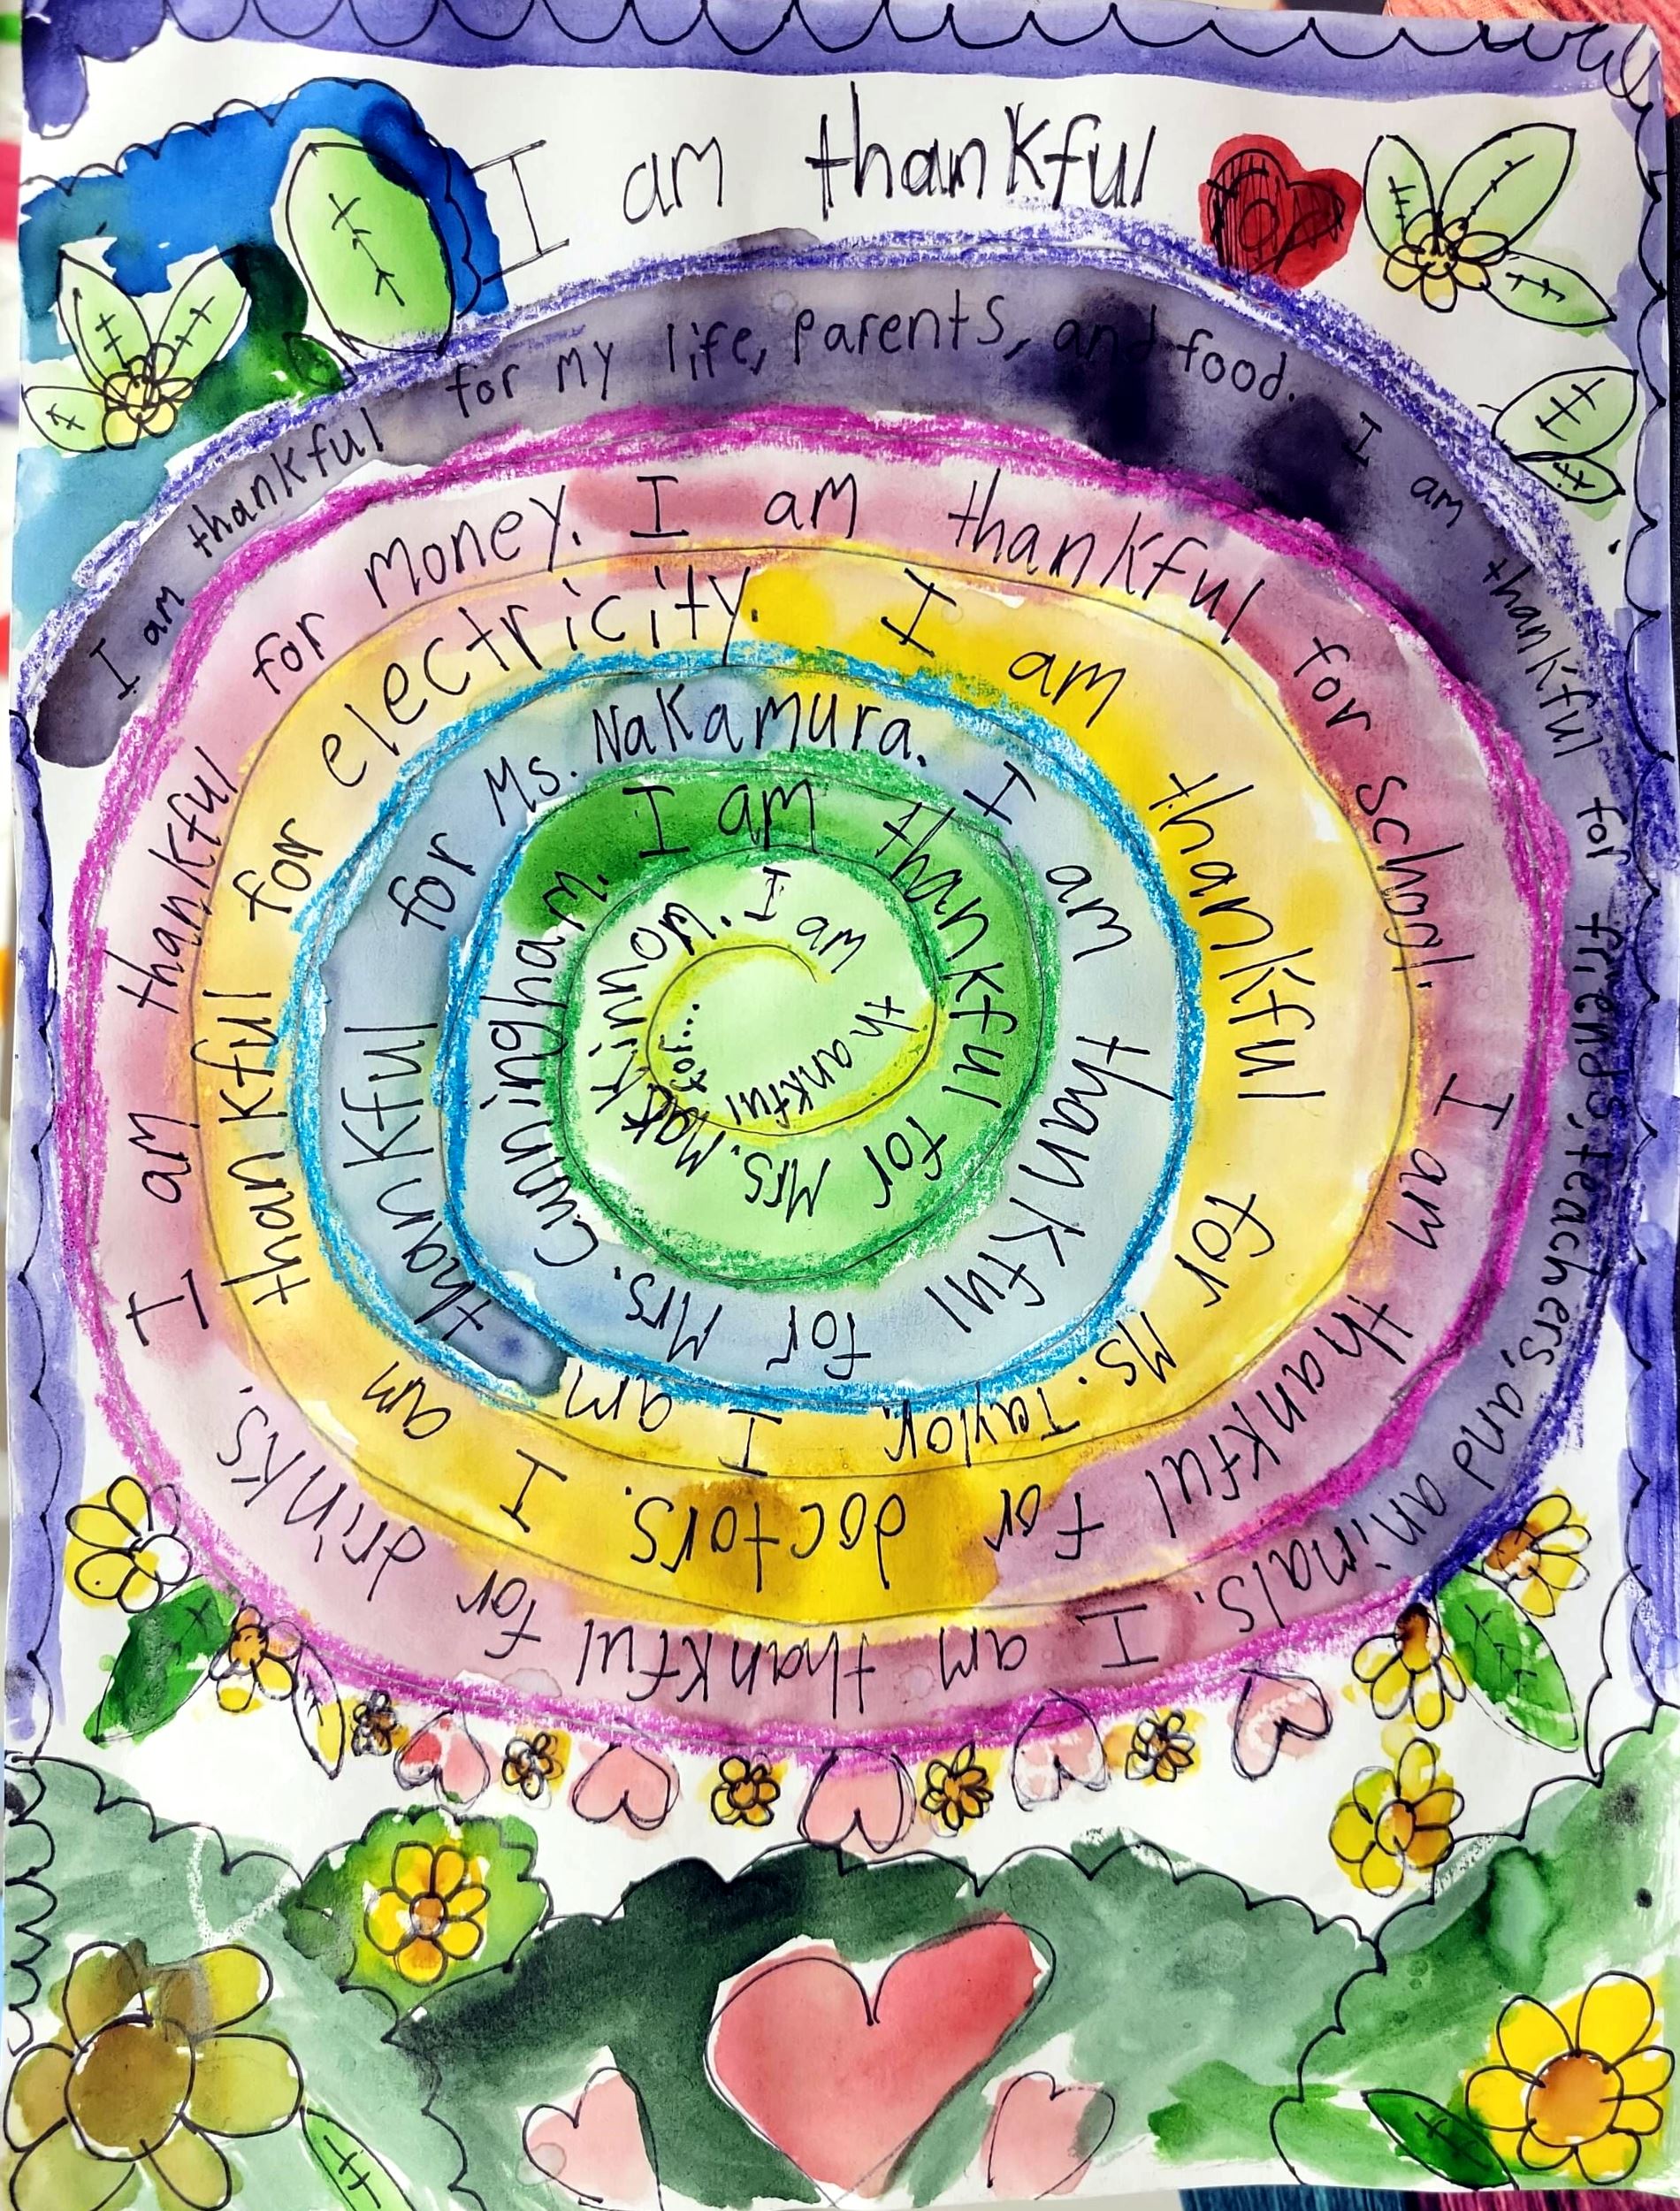 I am thankful
I am thankful for my life, parents, and food.
I am thankful for friends, teachers, and animals.
I am thankful for drinks.
I am thankful for money.
I am thankful for school.
I am thankful for doctors.
I am thankful for electricity.
I am thankful for Ms. Taylor.
I am thankful for Ms. Nakamura.
I am thankful for Mrs. Cunningham.
I am thankful for Mrs. MacKinnon.
I am thankful for....